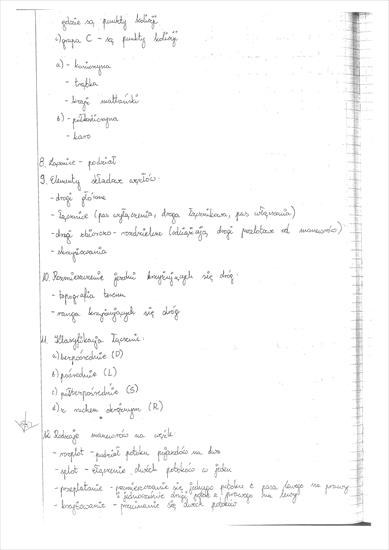 gdzie są punkty kolizji
c) grupa C - są punkty kolizji
a) - koniczyna
- trąbka
- krzyż maltański
b) - półkoniczyna
- karo
8. Łącznice - podział
9. Elementy składowe węzłów:
- drogi główne
- łącznice (pas wyłączenia, droga łącznikowa, pas włączania)
- drogi zbiorczo-rozdzielcze (odciążają drogi przelotowe od manewrów)
- skrzyżowania
10. Rozmieszczenie jezdni krzyżujących się dróg:
- topografia terenu
- ranga krzyżujących się dróg
11. Klasyfikacja łącznic:
a) bezpośrednie (D)
b) pośrednie (L)
c) półbezpośrednie (S)
d) z ruchem okrężnym (R)
12. Rodzaje manewrów na węźle
- rozplot - podział potoku pojazdów na dwa
- splot - łączenie dwóch potoków w jeden
- przeplatanie - przemieszczanie się jednego potoku z pasa lewego na prawy
i jednocześnie drugi potok z prawego na lewy
- krzyżowanie - przecinanie się dwóch potoków